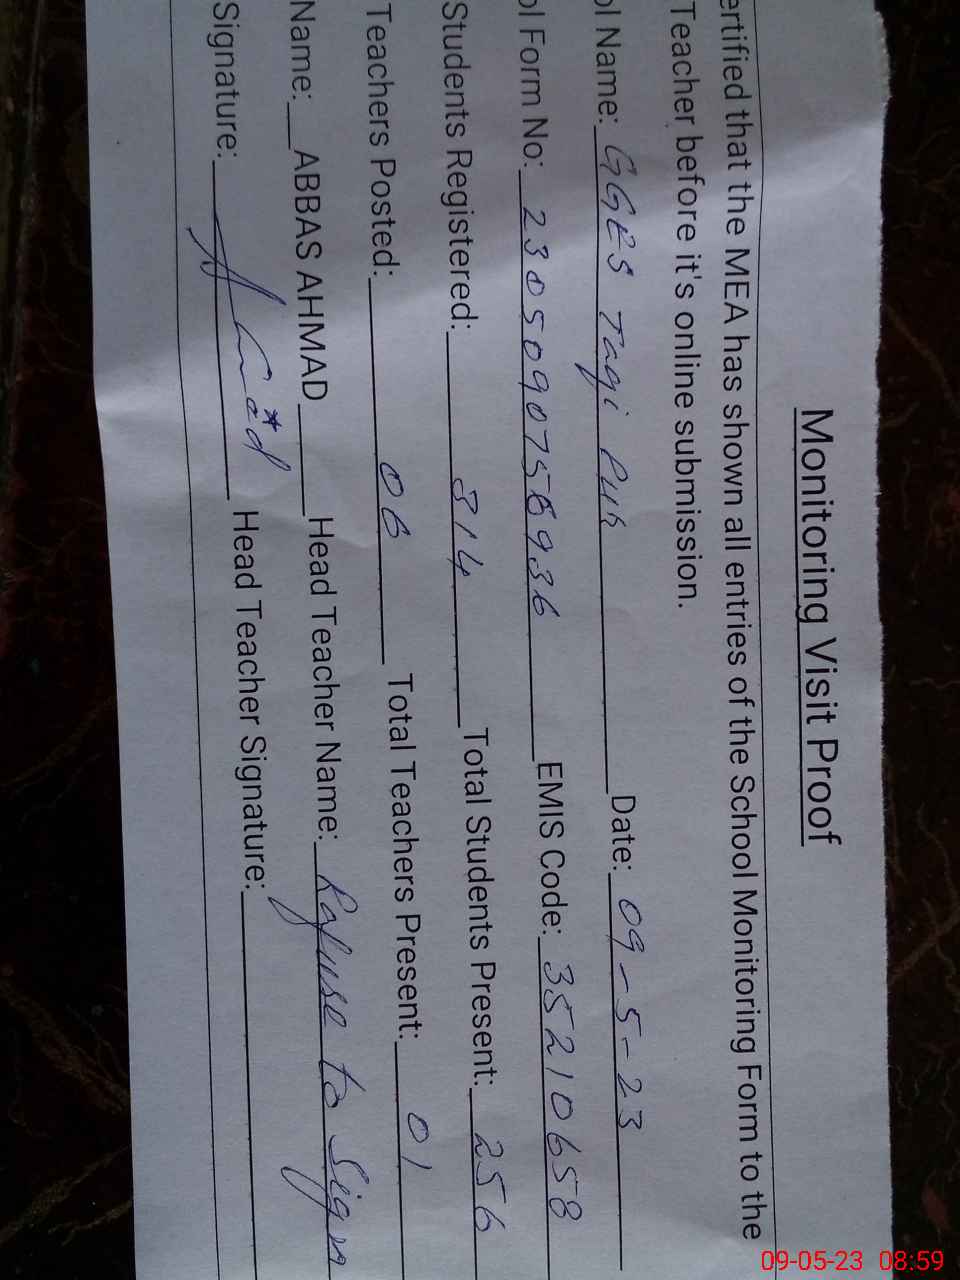 Monitoring Visit Proof
ertified that the MEA has shown all entries of the School Monitoring Form to the
Teacher before it's online submission.
ol Name: GGES Taqi Pur Date: 09-5-23
ol Form No: EMIS Code: 35210658
Students Registered: 314 Total Students Present: 256
Teachers Posted: 08 Total Teachers Present: 01
Name: ABBAS AHMAD Head Teacher Name: Refuse to Sign
Signature: Head Teacher Signature:
09-05-23 08:59